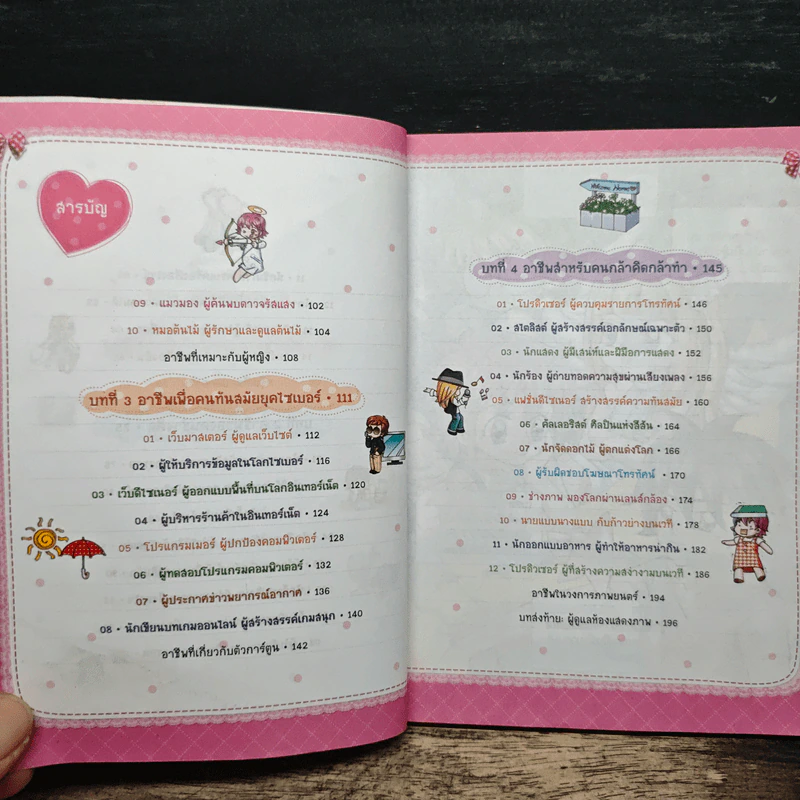 สารบัญ
09 • แมวมอง ผู้ค้นพบดาวจรัสแสง • 102
10 • หมอต้นไม้ ผู้รักษาและดูแลต้นไม้ • 104
อาชีพที่เหมาะกับผู้หญิง • 108
บทที่ 3 อาชีพเพื่อคนทันสมัยยุคไซเบอร์ • 111
01 • เว็บมาสเตอร์ ผู้ดูแลเว็บไซต์ • 112
02 • ผู้ให้บริการข้อมูลในโลกไซเบอร์ • 116
03 • เว็บดีไซเนอร์ ผู้ออกแบบพื้นที่บนโลกอินเทอร์เน็ต • 120
04 • ผู้บริหารร้านค้าในอินเทอร์เน็ต • 124
05 • โปรแกรมเมอร์ ผู้ปกป้องคอมพิวเตอร์ • 128
06 • ผู้ทดสอบโปรแกรมคอมพิวเตอร์ • 132
07 • ผู้ประกาศข่าวพยากรณ์อากาศ • 136
08 • นักเขียนบทเกมออนไลน์ ผู้สร้างสรรค์เกมสนุก • 140
อาชีพที่เกี่ยวกับตัวการ์ตูน • 142
Welcome Home!!!
บทที่ 4 อาชีพสำหรับคนกล้าคิดกล้าทำ • 145
01 • โปรดิวเซอร์ ผู้ควบคุมรายการโทรทัศน์ • 146
02 • สไตลิสต์ ผู้สร้างสรรค์เอกลักษณ์เฉพาะตัว • 150
03 • นักแสดง ผู้มีเสน่ห์และฝีมือการแสดง • 152
04 • นักร้อง ผู้ถ่ายทอดความสุขผ่านเสียงเพลง • 156
05 • แฟชั่นดีไซเนอร์ สร้างสรรค์ความทันสมัย • 160
06 • คัลเลอริสต์ ศิลปินแห่งสีสัน • 164
07 • นักจัดดอกไม้ ผู้ตกแต่งโลก • 166
08 • ผู้รับผิดชอบโฆษณาโทรทัศน์ • 170
09 • ช่างภาพ มองโลกผ่านเลนส์กล้อง • 174
10 • นายแบบนางแบบ กับก้าวย่างบนเวที • 178
11 • นักออกแบบอาหาร ผู้ทำให้อาหารน่ากิน • 182
12 • โปรดิวเซอร์ ผู้ที่สร้างความสง่างามบนเวที • 186
อาชีพในวงการภาพยนตร์ • 194
บทส่งท้าย: ผู้ดูแลห้องแสดงภาพ • 196